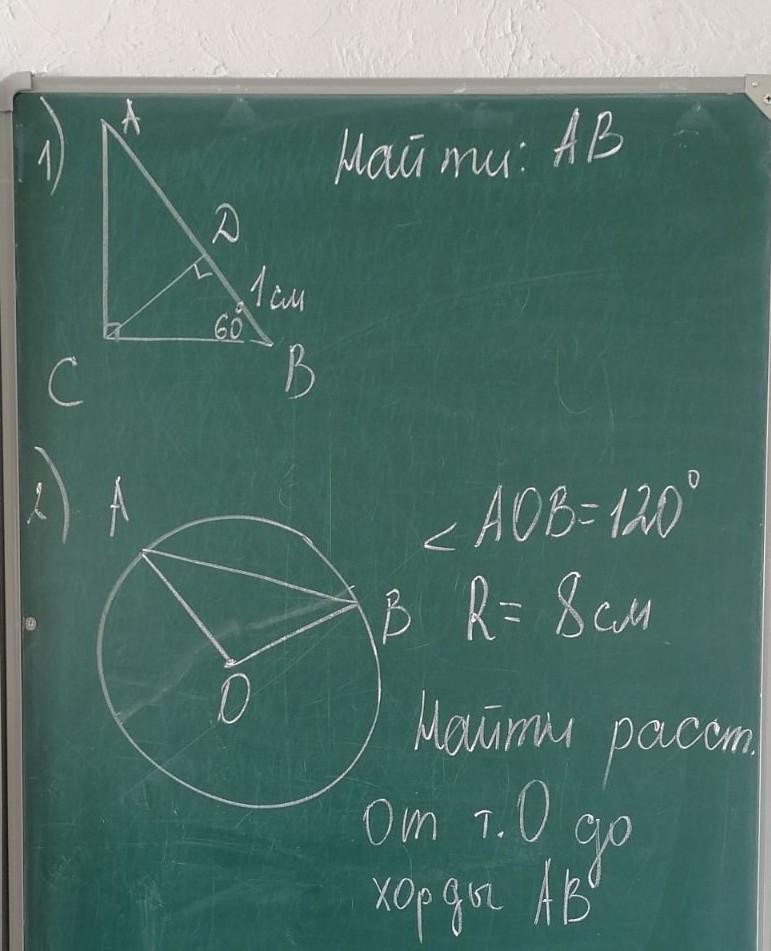 1)
A
Найти: AB
D
1 см
60°
C
B
2)
A
< AOB = 120°
B
R = 8 см
O
Найти расст.
От т. O до
хорды AB